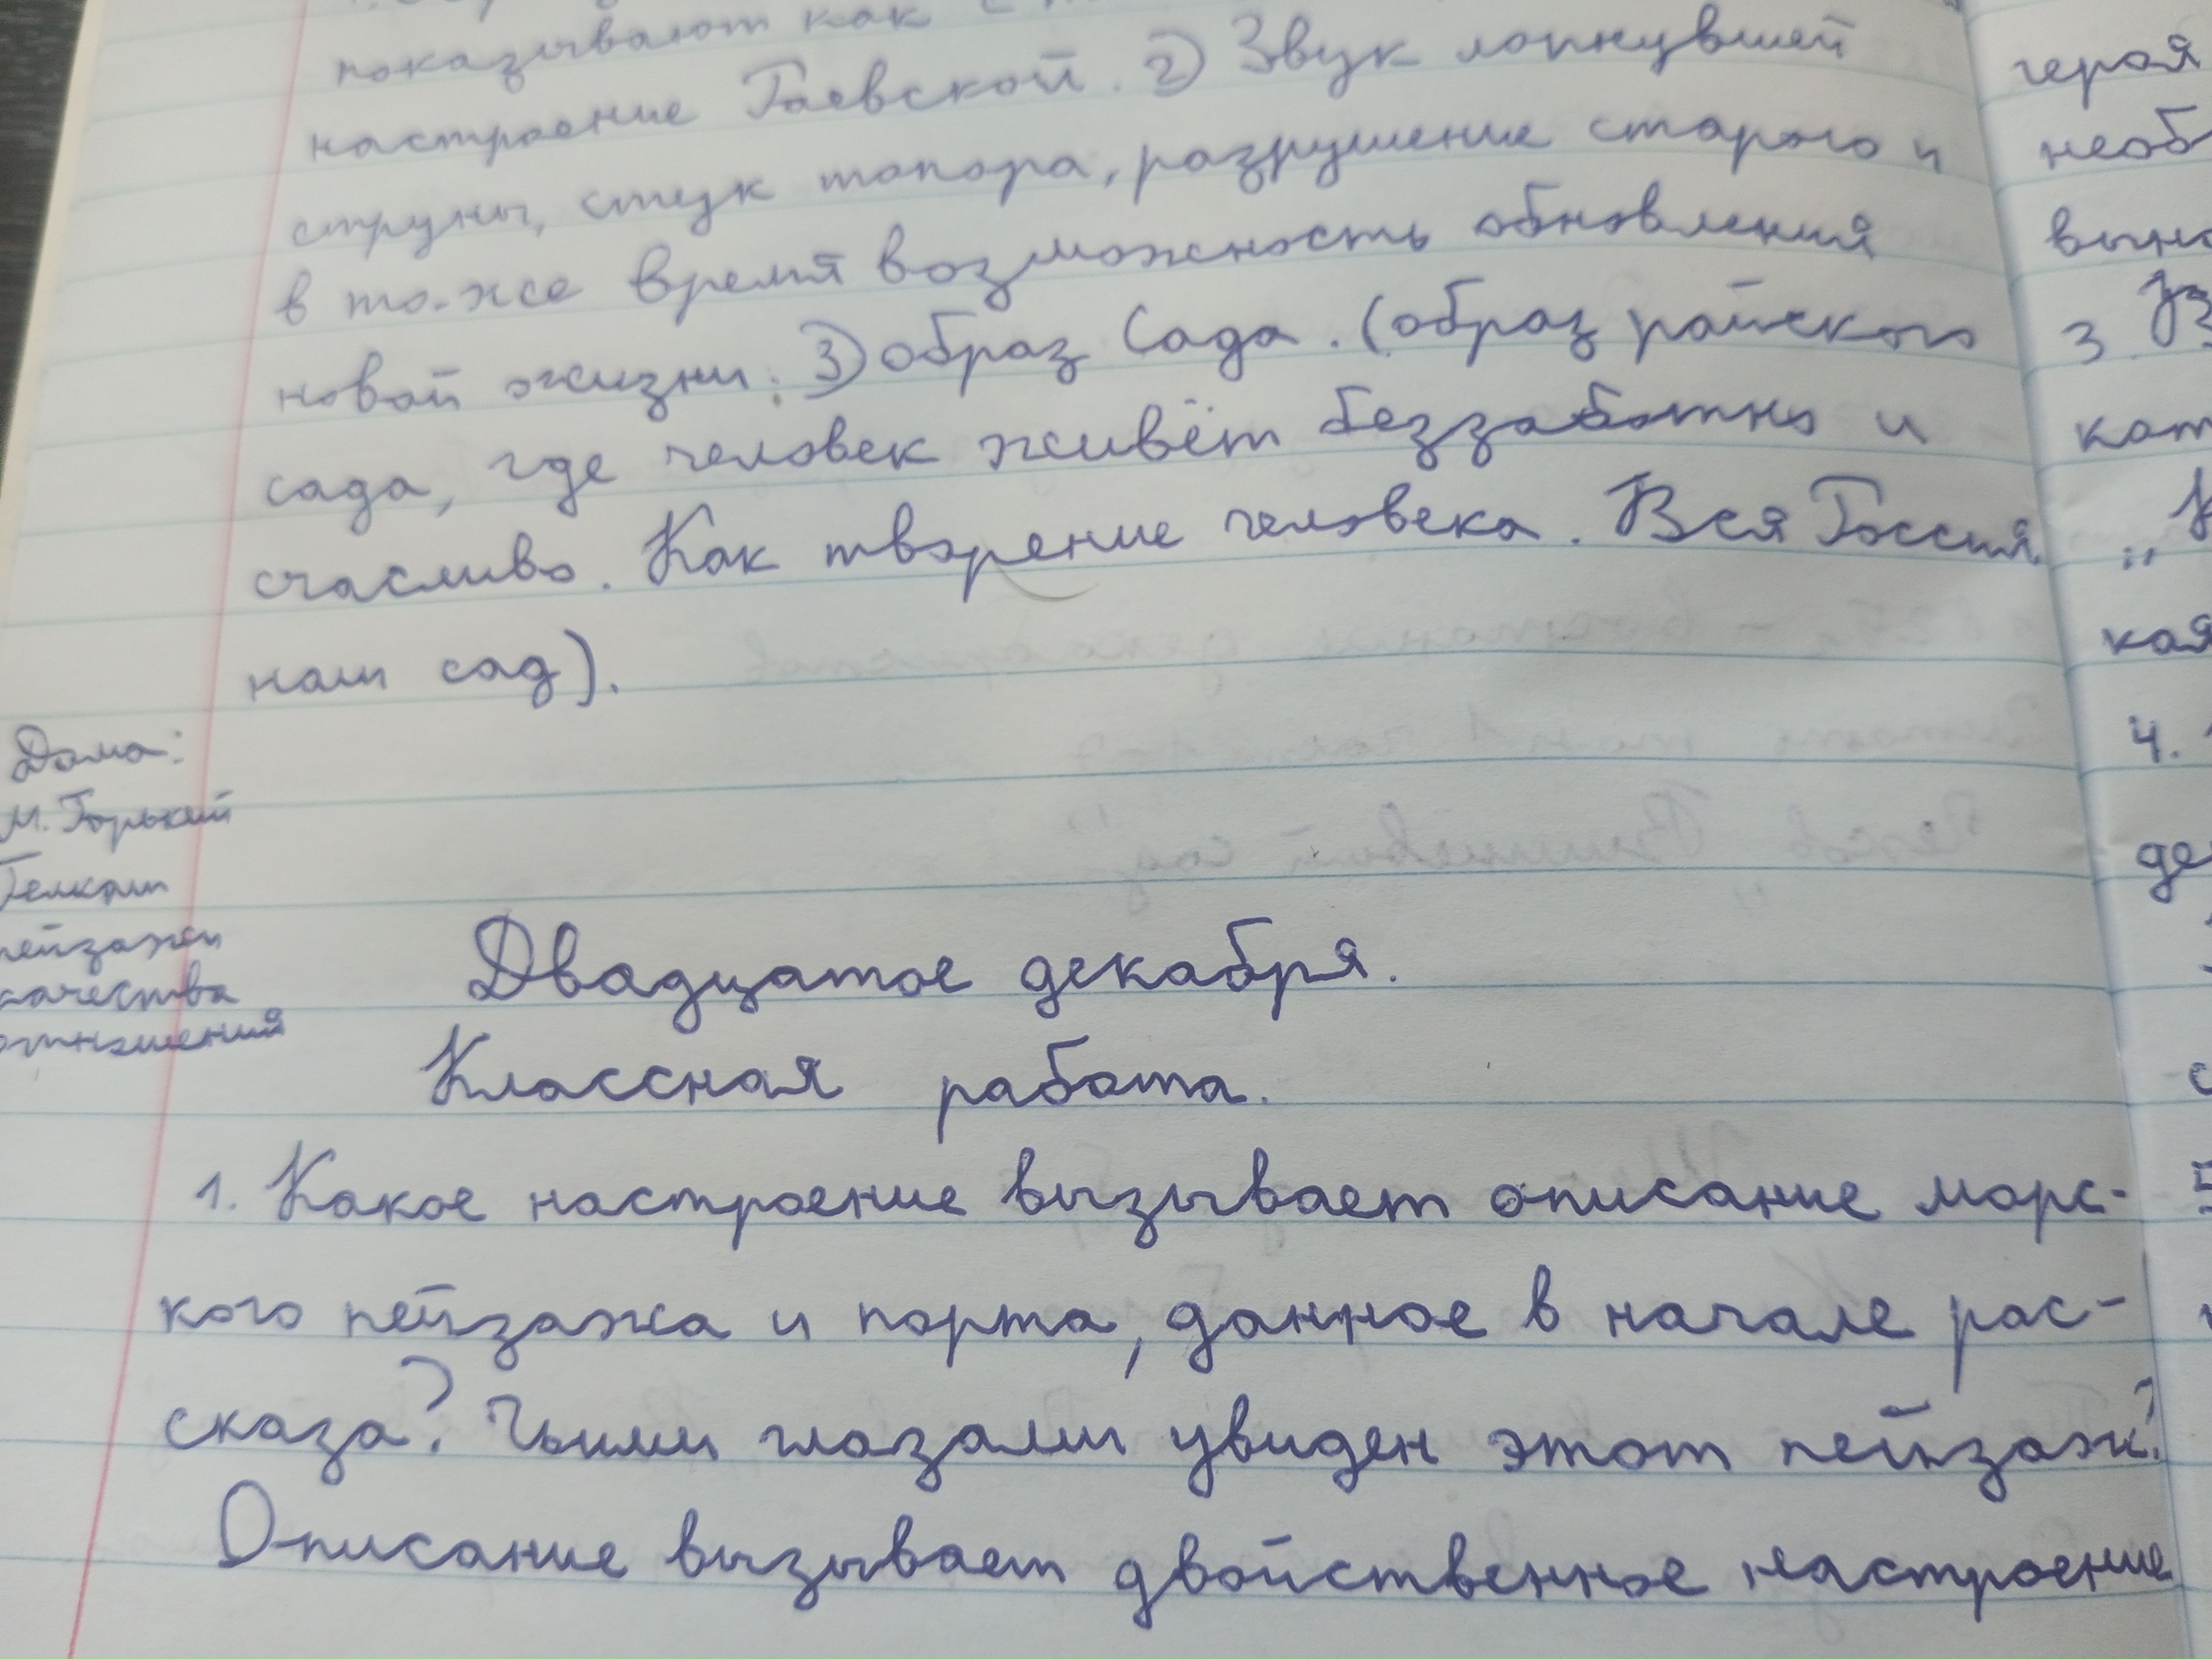 показывают как
настроение Раевской. 2) Звук лопнувшей
струны, стук топора, разрушение старого и
в то-же время возможность обновления
новой жизни. 3) образ Сада. (образ райского
сада, где человек живёт беззаботно и
счасливо. Как творение человека. Вся Россия
наш сад).
Дома:
М. Горький
Челкаш
пейзажи
качества
отношений
Двадцатое декабря.
Классная работа.
1. Какое настроение вызывает описание морс-
кого пейзажа и порта, данное в начале рас-
сказа? Чьими глазами увиден этот пейзаж?
Описание вызывает двойственное настроение
героя
необ
вын
3
кат
„
кая
4.
де
5